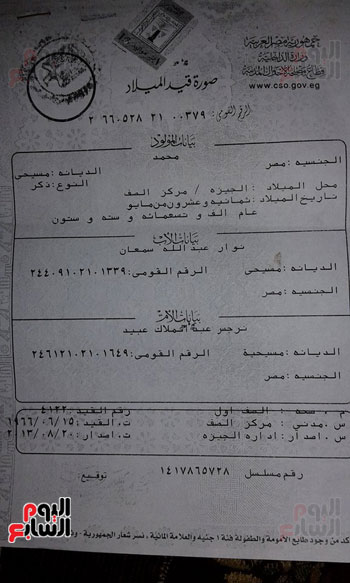 جمهورية مصر العربية
وزارة الداخلية
قطاع مصلحة الأحوال المدنية
www.cso.gov.eg
صورة قيد الميلاد
الرقم القومى: ٢ ٦٦٠٥٢٨ ٢١ ٠٠٣٧٩
بيانات المولود
محمد
الجنسيه: مصر
الديانه: مسيحى
النوع: ذكر
محل الميلاد: الجيزه / مركز الصف
تاريخ الميلاد: ثمانيه وعشرون من مايو
عام الف و تسعمائه و سته و ستون
بيانات الأب
نوار عبدالله سمعان
الديانه: مسيحى الرقم القومى: ٢٤٤٠٩١٠٢١٠١٣٣٩
الجنسيه: مصر
بيانات الأم
نرجس عبد الملاك عبيد
الديانه: مسيحية الرقم القومى: ٢٤٦١٢١٠٢١٠١٦٤٩
الجنسيه: مصر
م. صحه: الصف اول رقم القيد: ٤١٢٢
س. مدنى: مركز الصف ت. القيد: ١٩٦٦/٠٦/١٥
س. اصدار: اداره الجيزه ت. اصدار: ٢٠١٣/٠٨/٢٠
رقم مسلسل ١٤١٧٨٦٥٧٢٨ توقيع
كد من وجود طابع الأمومة والطفولة فئة ١ جنيه والعلامة المائية، نسر شعار الجمهورية
اليوم السابع
اليوم السابع